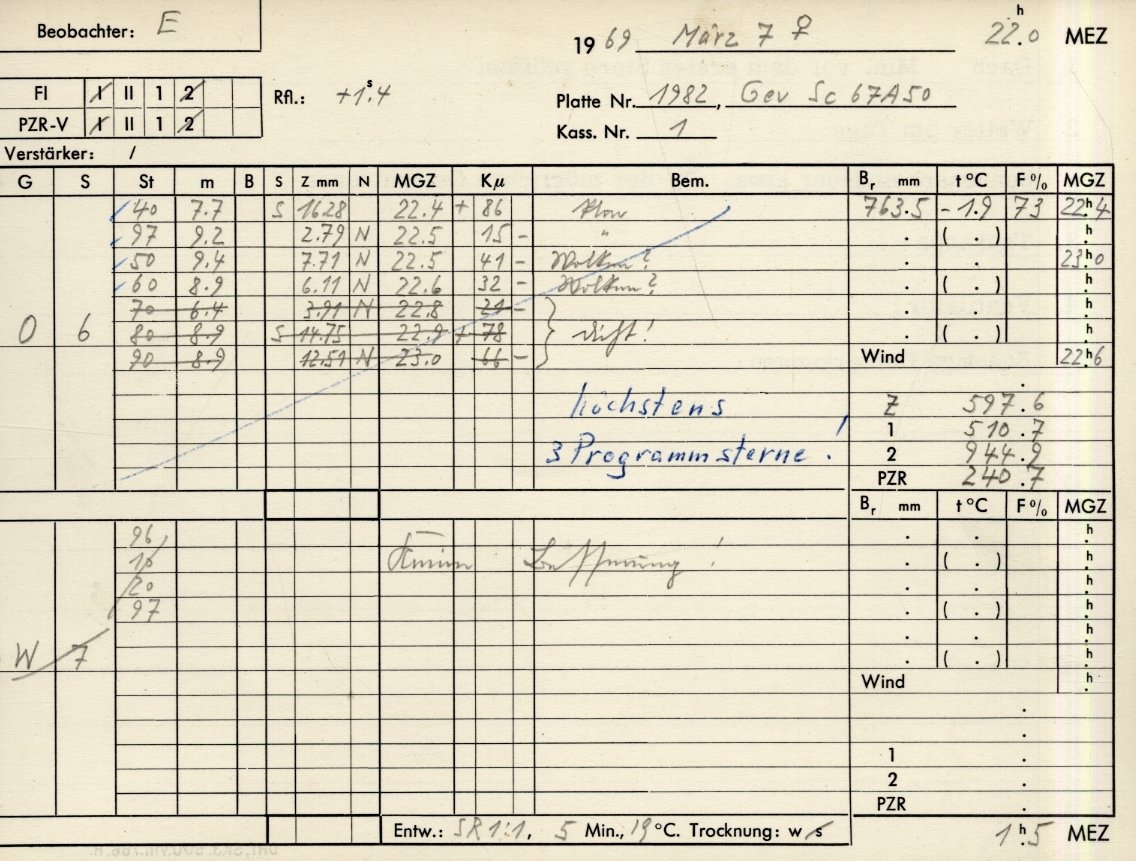 Beobachter: E
1969 März 7 ♀ 22.0 h MEZ
FI I II 1 2 Rfl.: +1.4 s
Platte Nr. 1982, Gev Sc 67A50
PZR-V I II 1 2
Kass. Nr. 1
Verstärker: /
G S St m B S Z mm N MGZ Kμ Bem. Br mm t °C F % MGZ
40 7.7 S 16.28 22.4 + 86 klar 763.5 -1.9 73 22h4
97 9.2 2.79 N 22.5 15 - " . ( . ) h
50 9.4 7.71 22.5 41 - Wolken? . . 23h0
60 8.9 6.11 N 22.6 32 - Wolken? . ( . ) h
70 6.4 3.91 N 22.8 21 - . . h
O 6 80 8.9 S 14.75 22.9 + 78 dicht! . ( . ) h
90 8.9 12.51 N 23.0 66 - Wind 22h6
höchstens Z 597.6
1 510.7
3 Programmsterne! 2 944.9
PZR 240.7
Br mm t °C F % MGZ
96 . . h
10 . ( . ) h
20 . . h
97 . ( . ) h
. . h
W 7 . ( . ) h
Wind h
1 .
2 .
PZR .
Entw.: SR 1:1, 5 Min., 19 °C. Trocknung: w s 1h.5 MEZ